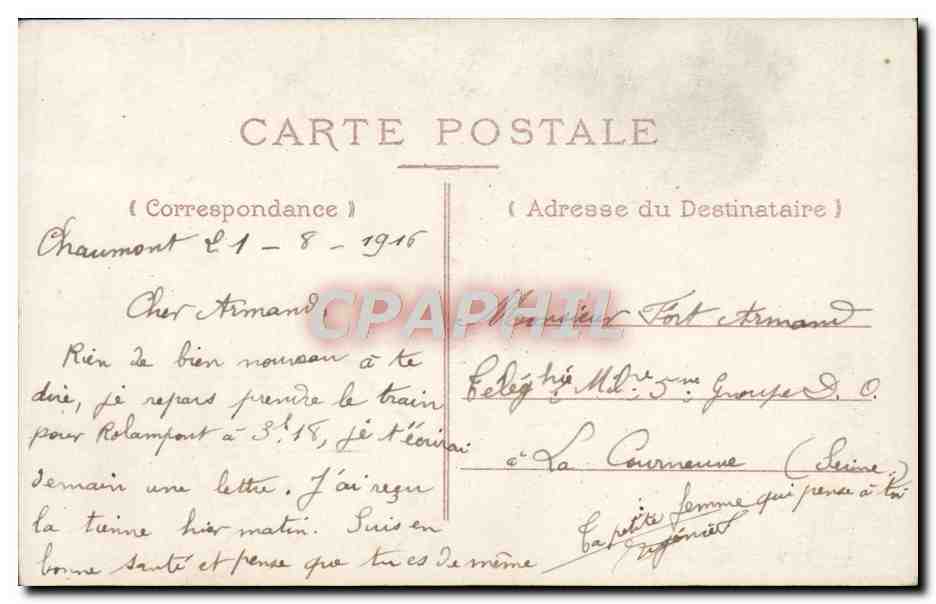 CARTE POSTALE
( Correspondance )
Chaumont 21 - 8 - 1916
Cher Armand,
Rien de bien nouveau à te
dire, je repars prendre le train
pour Rolampont à 3h 18, je t'écrirai
demain une lettre. J'ai reçu
la tienne hier matin. Suis en
bonne santé et pense que tu es de même
( Adresse du Destinataire )
Monsieur Fort Armand
Télég hie Mil re 5me Groupe D. O.
à La Courneuve (Seine)
Ta petite femme qui pense à toi
CPAPHIL